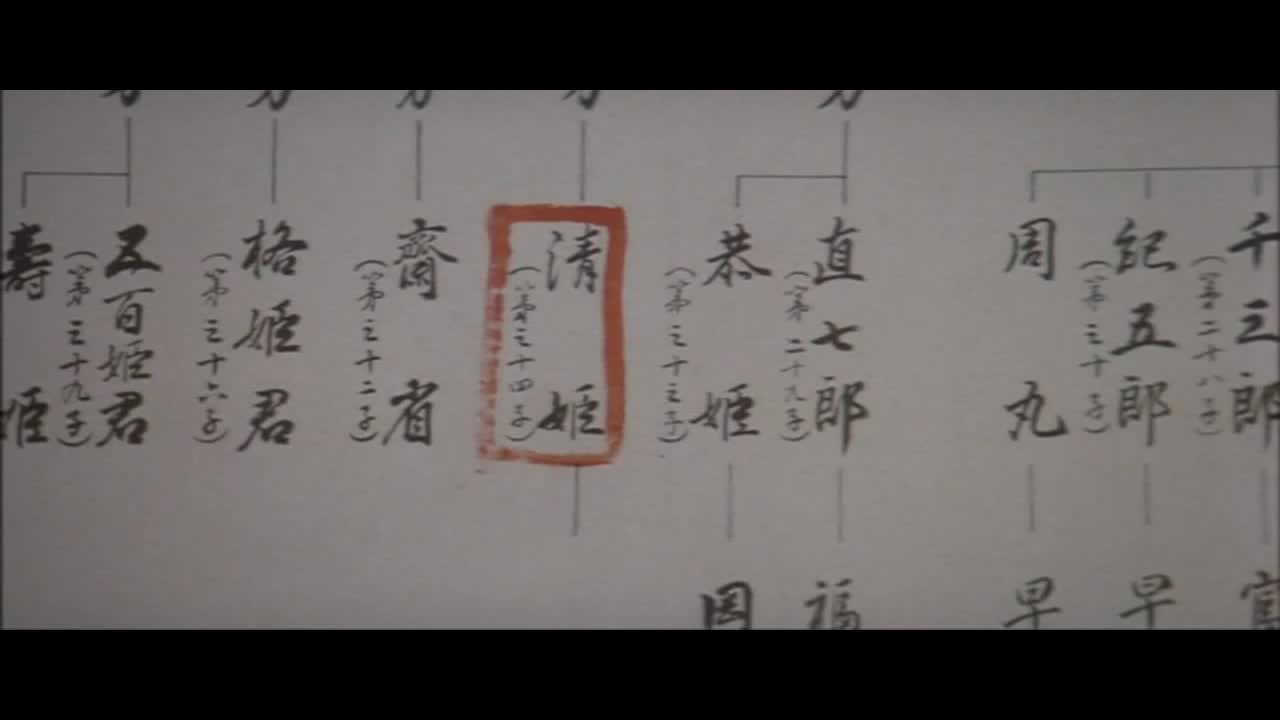 千三郎
(第二十八子)
紀五郎
(第三十子)
周丸
直七郎
(第二十九子)
恭姫
(第三十三子)
清姫
(第三十四子)
齋省
(第三十二子)
格姫君
(第三十六子)
五百姫君
(第三十九子)
壽姫
早
早
福